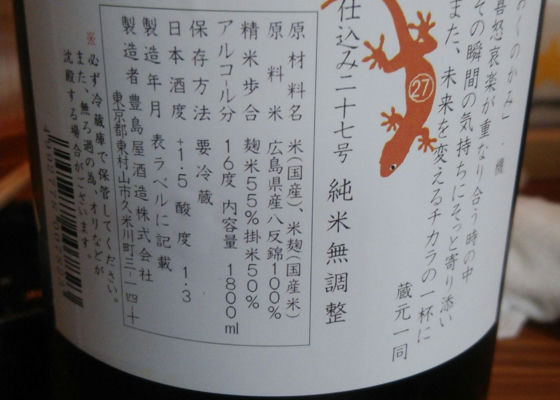 おくのかみ」・機
喜怒哀楽が重なり合う時の中
その瞬間の気持ちにそっと寄り添い
また、未来を変えるチカラの一杯に
蔵元一同
27
仕込み二十七号 純米無調整
原材料名 米(国産)、米麹(国産米)
原料米 広島県産八反錦100%
精米歩合 麹米55%掛米50%
アルコール分 16度 内容量 1800ml
保存方法 要冷蔵
日本酒度 +1.5 酸度 1.3
製造年月 表ラベルに記載
製造者 豊島屋酒造株式会社
東京都東村山市久米川町三-一四-十
※必ず冷蔵庫で保管してください。
また、無ろ過の為、オリなどが
沈殿する場合がございます。